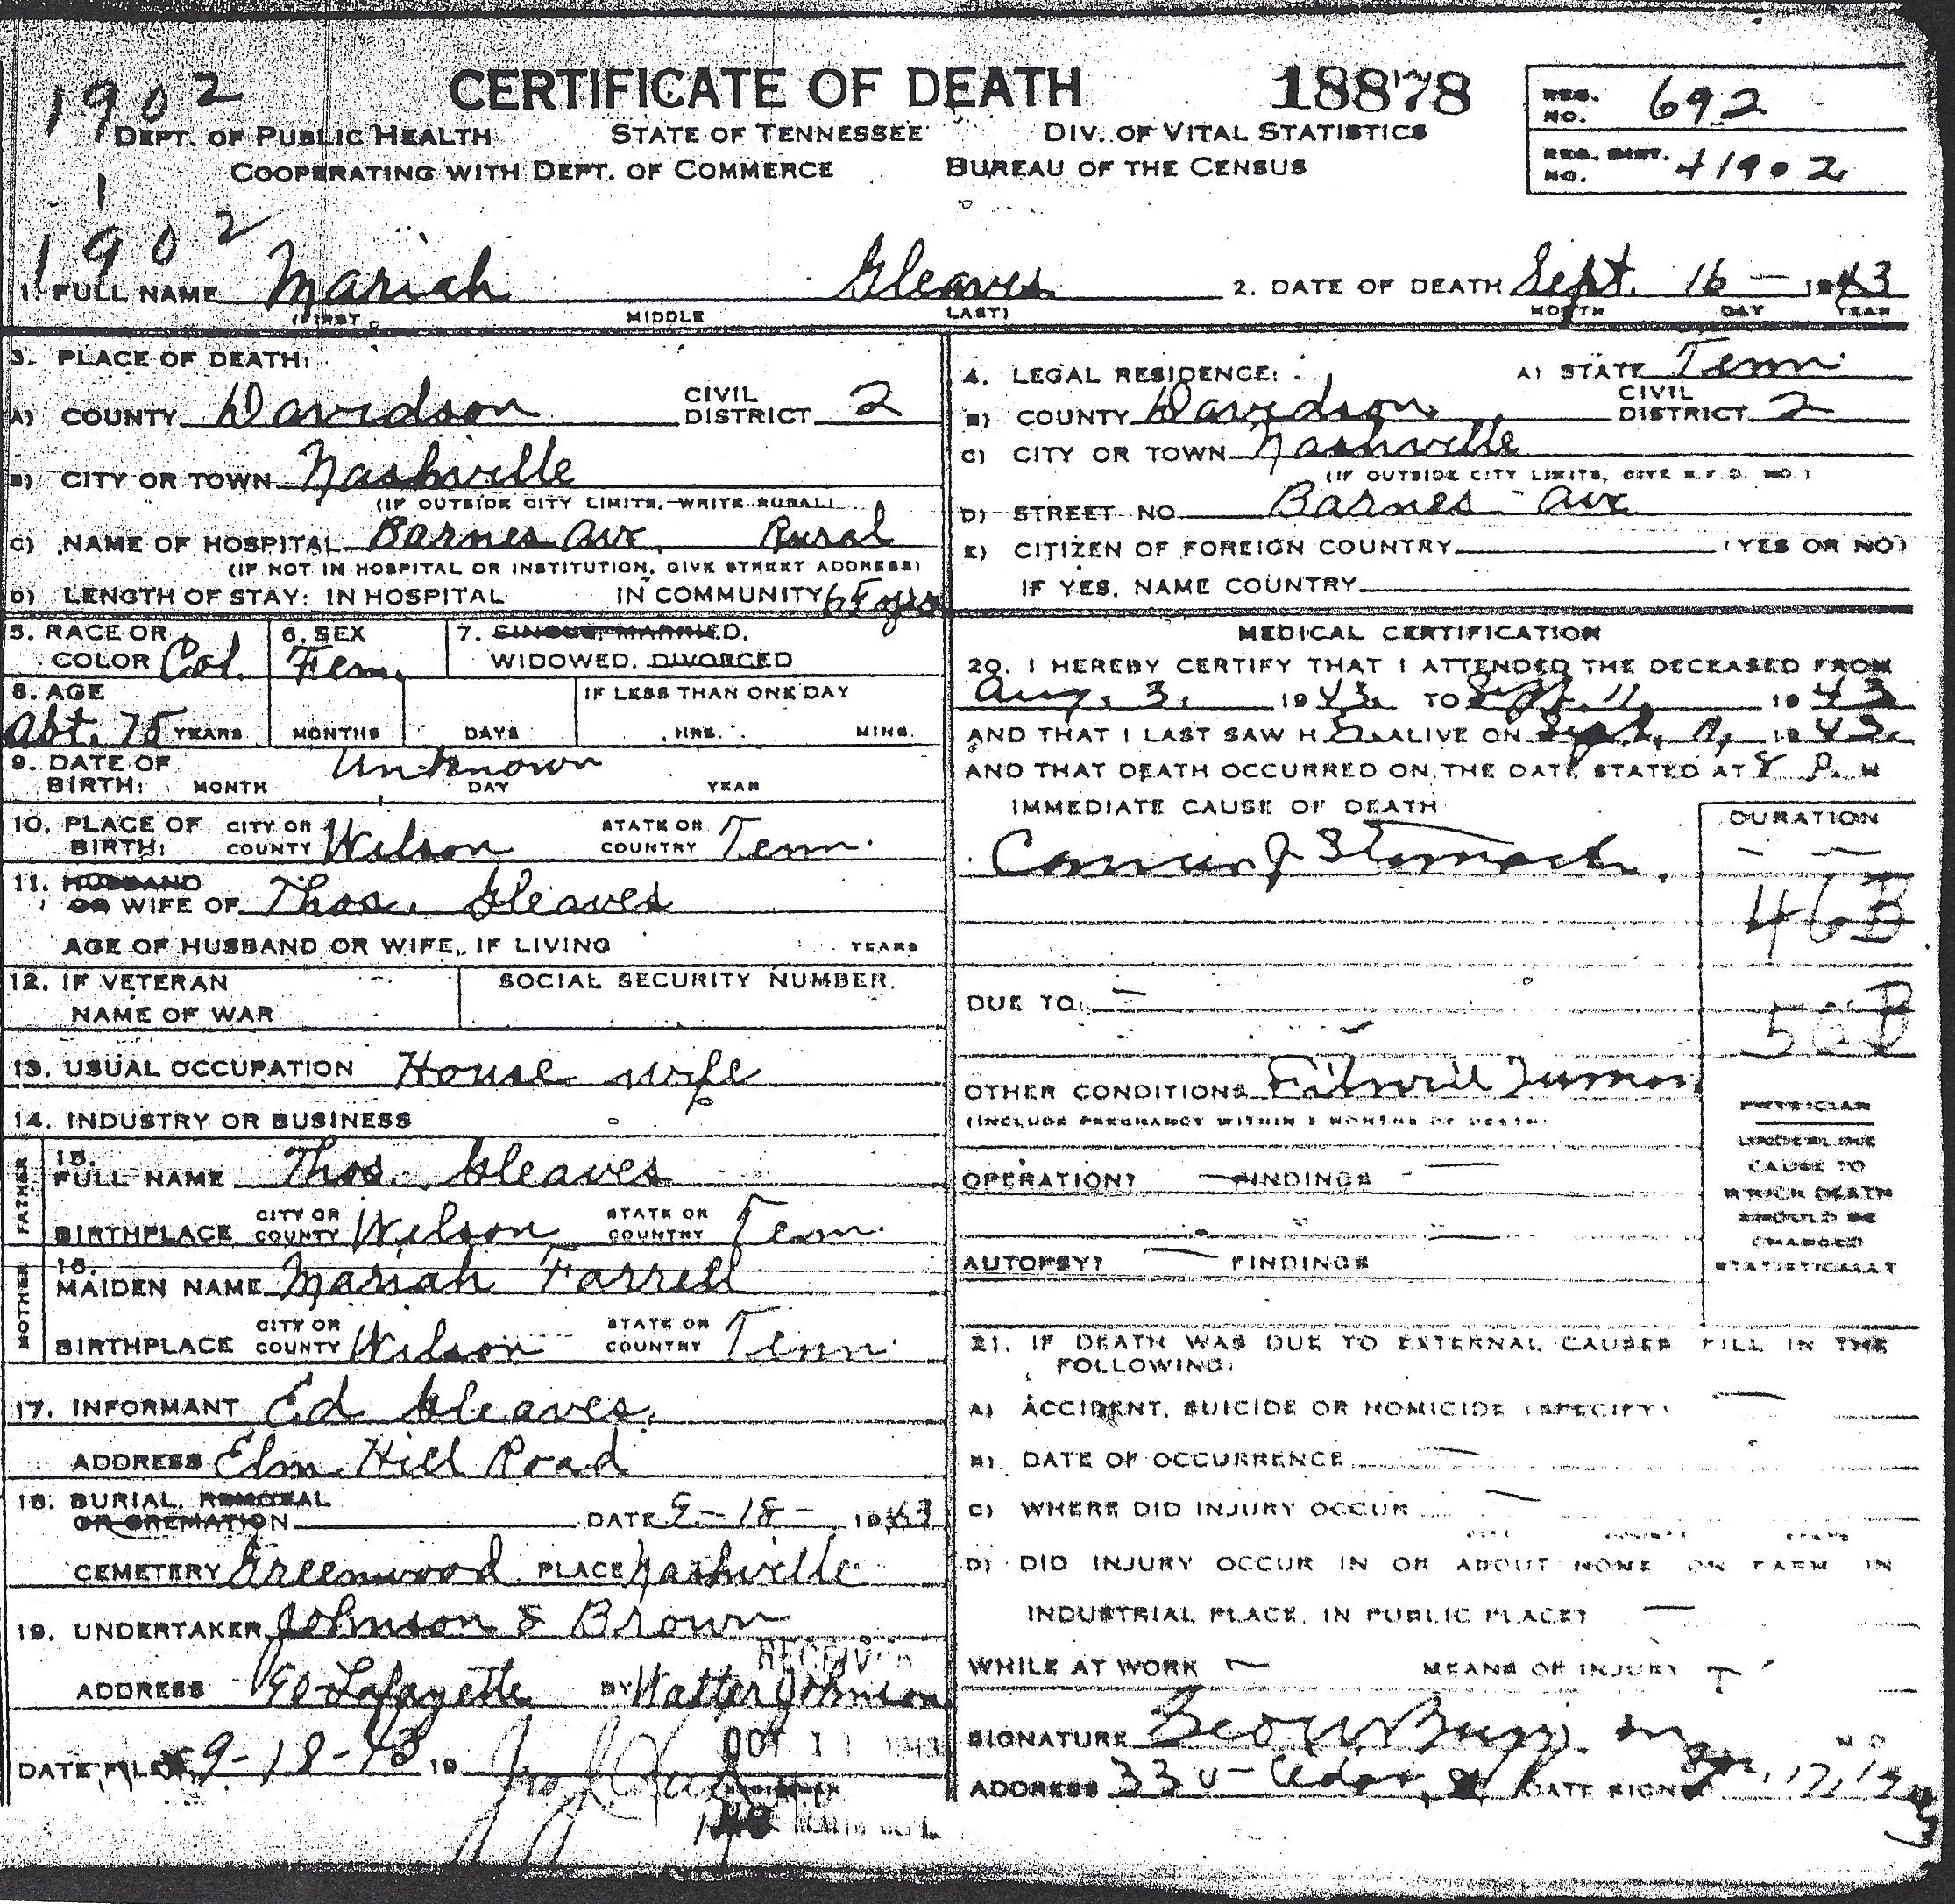 1902
CERTIFICATE OF DEATH 18878
REG. NO. 692
DEPT. OF PUBLIC HEALTH STATE OF TENNESSEE DIV. OF VITAL STATISTICS
COOPERATING WITH DEPT. OF COMMERCE BUREAU OF THE CENSUS
REG. DIST. NO. 41902
1
1902
1. FULL NAME Mariah Gleaves 2. DATE OF DEATH Sept. 16 - 1943
(FIRST MIDDLE LAST) MONTH DAY YEAR
3. PLACE OF DEATH:
A) COUNTY Davidson CIVIL DISTRICT 2
B) CITY OR TOWN Nashville
(IF OUTSIDE CITY LIMITS, WRITE RURAL)
C) NAME OF HOSPITAL Barnes Ave. Rural
(IF NOT IN HOSPITAL OR INSTITUTION, GIVE STREET ADDRESS)
D) LENGTH OF STAY: IN HOSPITAL IN COMMUNITY 65 yrs
4. LEGAL RESIDENCE: A) STATE Tenn.
B) COUNTY Davidson CIVIL DISTRICT 2
C) CITY OR TOWN Nashville
(IF OUTSIDE CITY LIMITS, GIVE R.F.D. NO.)
D) STREET NO Barnes - Ave
E) CITIZEN OF FOREIGN COUNTRY (YES OR NO)
IF YES, NAME COUNTRY
5. RACE OR COLOR Col. 6. SEX Fem. 7. SINGLE, MARRIED, WIDOWED, DIVORCED
8. AGE IF LESS THAN ONE DAY
Abt. 75 YEARS MONTHS DAYS HRS. MINS.
9. DATE OF BIRTH: Unknown
MONTH DAY YEAR
10. PLACE OF BIRTH: CITY OR COUNTY Wilson STATE OR COUNTRY Tenn.
11. HUSBAND OR WIFE OF Thos. Gleaves
AGE OF HUSBAND OR WIFE, IF LIVING YEARS
12. IF VETERAN NAME OF WAR SOCIAL SECURITY NUMBER
13. USUAL OCCUPATION House wife
14. INDUSTRY OR BUSINESS
FATHER
15. FULL NAME Thos. Gleaves
BIRTHPLACE CITY OR COUNTY Wilson STATE OR COUNTRY Tenn.
MOTHER
16. MAIDEN NAME Mariah Farrell
BIRTHPLACE CITY OR COUNTY Wilson STATE OR COUNTRY Tenn.
17. INFORMANT Ed Gleaves.
ADDRESS Elm Hill Road
18. BURIAL, REMOVAL OR CREMATION DATE 9-18- 1943
CEMETERY Greenwood PLACE Nashville
19. UNDERTAKER Johnson & Brown
RECEIVED
ADDRESS 90 Lafayette BY Walter Johnson
OCT 11 1943
DATE FILED 9-18-43 19
MEDICAL CERTIFICATION
20. I HEREBY CERTIFY THAT I ATTENDED THE DECEASED FROM
Aug. 3, 1943. TO Sept. 11, 1943
AND THAT I LAST SAW H ALIVE ON Sept. 1943.
AND THAT DEATH OCCURRED ON THE DATE STATED AT 8 P. M
IMMEDIATE CAUSE OF DEATH DURATION
Cancer of Stomach.
46B
DUE TO: -
OTHER CONDITIONS Fibroid Tumor
(INCLUDE PREGNANCY WITHIN 3 MONTHS OF DEATH)
PHYSICIAN
UNDERLINE
CAUSE TO
WHICH DEATH
SHOULD BE
CHARGED
STATISTICALLY
OPERATION? - FINDINGS -
AUTOPSY? - FINDINGS
21. IF DEATH WAS DUE TO EXTERNAL CAUSES FILL IN THE
FOLLOWING:
A) ACCIDENT, SUICIDE OR HOMICIDE (SPECIFY) -
B) DATE OF OCCURRENCE -
C) WHERE DID INJURY OCCUR -
CITY COUNTY STATE
D) DID INJURY OCCUR IN OR ABOUT HOME ON FARM IN
INDUSTRIAL PLACE, IN PUBLIC PLACE? -
WHILE AT WORK - MEANS OF INJURY -
SIGNATURE M D
ADDRESS Cedar St DATE SIGNED 17, 1943